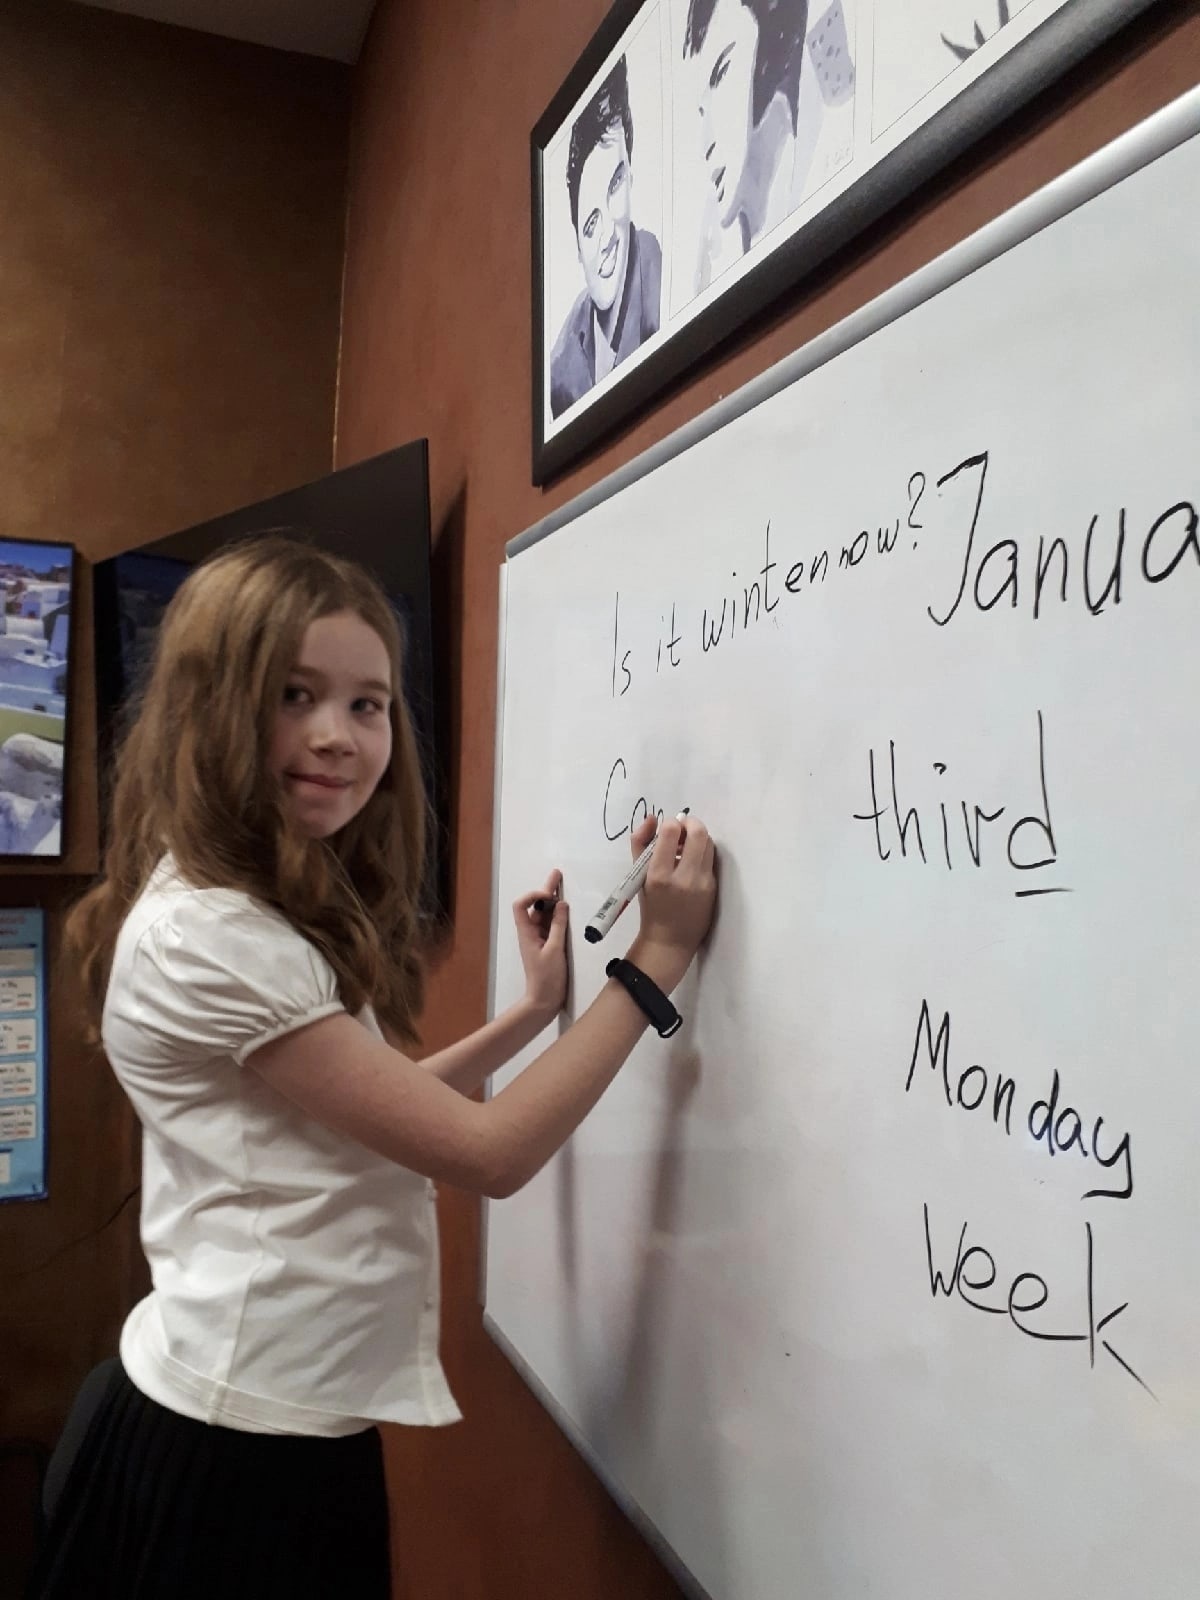 Is it winten now?
Janua
Can
third
Monday
Week